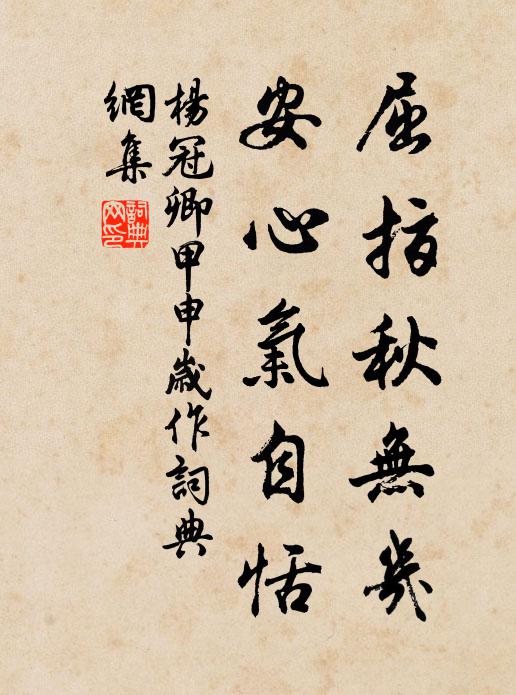 屈指秋無幾
安心氣自恬
楊冠卿甲申歲作詞典
網集
詞典
網印